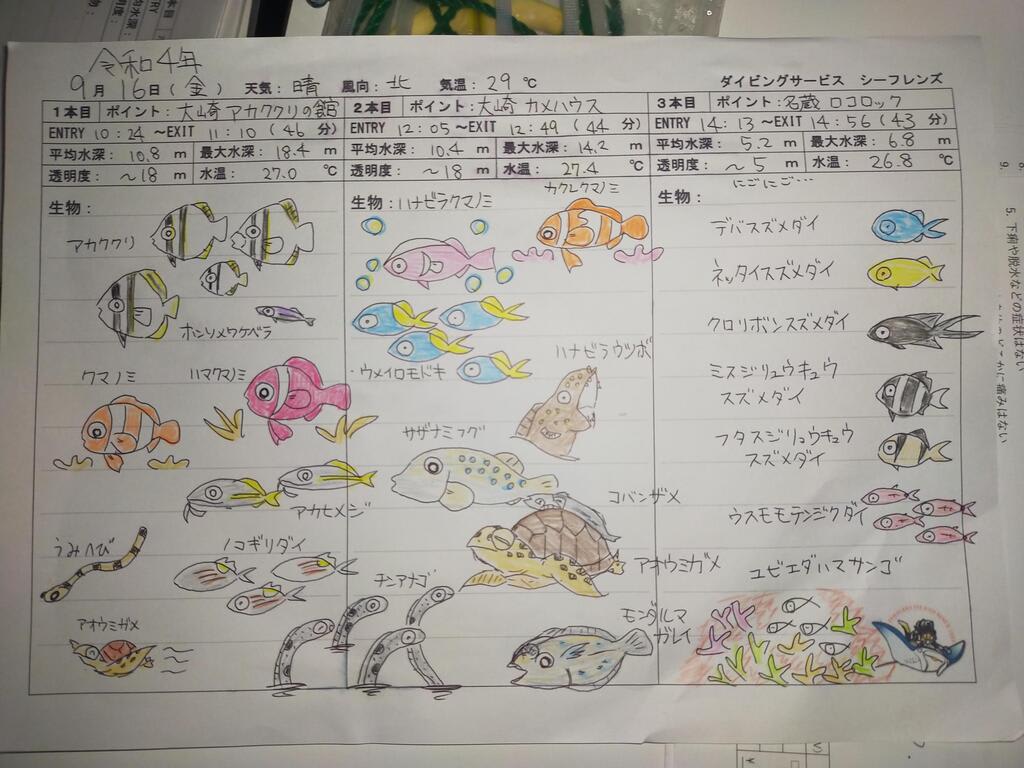 令和4年
9月16日(金) 天気：晴 風向：北 気温：29℃ ダイビングサービス シーフレンズ
1本目 ポイント：大崎 アカククリの館
ENTRY 10:24～EXIT 11:10(46分)
平均水深：10.8 m 最大水深：18.4 m
透明度：～18 m 水温：27.0 ℃
生物：
アカククリ
ホンソメワケベラ
クマノミ ハマクマノミ
アカヒメジ
うみへび ノコギリダイ
アオウミガメ
2本目 ポイント：大崎 カメハウス
ENTRY 12:05～EXIT 12:49(44分)
平均水深：10.4 m 最大水深：14.2 m
透明度：～18 m 水温：27.4 ℃
生物：ハナビラクマノミ カクレクマノミ
ハナビラウツボ
・ウメイロモドキ
サザナミフグ
コバンザメ
アオウミガメ
チンアナゴ
モンダルマ
ガレイ
3本目 ポイント：名蔵 ロコロック
ENTRY 14:13～EXIT 14:56(43分)
平均水深：5.2 m 最大水深：6.8 m
透明度：～5 m 水温：26.8 ℃
生物： にごにご…
デバスズメダイ
ネッタイスズメダイ
クロリボンスズメダイ
ミスジリュウキュウ
スズメダイ
フタスジリュウキュウ
スズメダイ
ウスモモテンジクダイ
ユビエダハマサンゴ